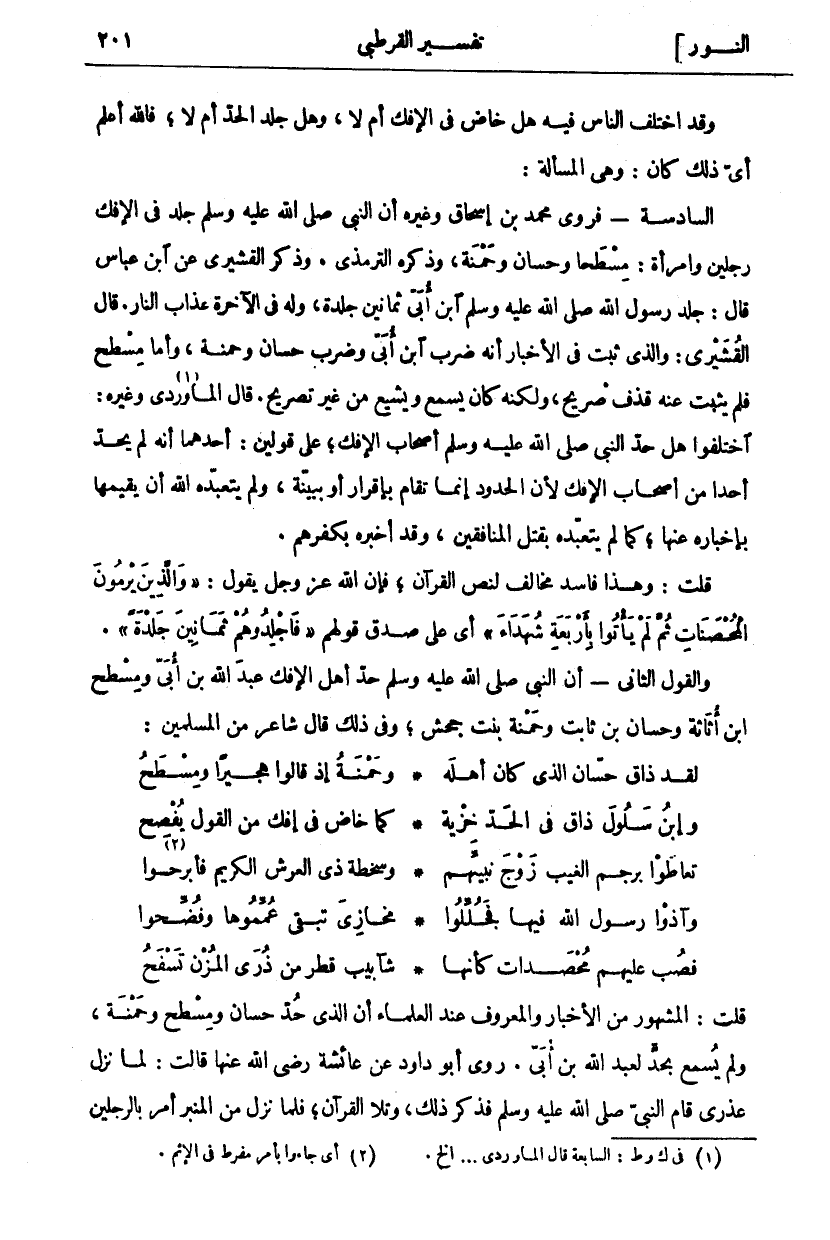 النــور] تفســير القرطبي ٢٠١
وقد اختلف الناس فيـه هل خاض فى الإفك أم لا ، وهل جلد الحدّ أم لا ؛ فالله أعلم
أىّ ذلك كان : وهى المسألة :
السادسـة — فروى محمد بن إسحاق وغيره أن النبي صلى الله عليه وسلم جلد فى الإفك
رجلين وامرأة : مِسْطَحا وحسان وحَمْنَة ، وذكره الترمذى . وذكر القشيرى عن آبن عباس
قال : جلد رسول الله صلى الله عليه وسلم آبن أُبَىّ ثمانين جلدة ، وله فى الآخرة عذاب النار. قال
القُشَيْرى : والذى ثبت فى الأخبار أنه ضرب آبن أُبَىّ وضرب حسان وحمنـة ، وأما مِسْطح
فلم يثبت عنه قذف صريح ، ولكنه كان يسمع ويشيع من غير تصريح. قال المـاوردى(١) وغيره :
آختلفوا هل حدّ النبي صلى الله عليـه وسلم أصحاب الإفك ؛ على قولين : أحدهما أنه لم يحـدّ
أحدا من أصحـاب الإفك لأن الحدود إنمـا تقام بإقرار أو ببيّنة ، ولم يتعبّده الله أن يقيمها
بإخباره عنها ؛ كما لم يتعبّده بقتل المنافقين ، وقد أخبره بكفرهم .
قلت : وهـذا فاسد مخالف لنص القرآن ؛ فإن الله عز وجل يقول : « وَالَّذِينَ يَرْمُونَ
الْمُحْصَنَاتِ ثُمَّ لَمْ يَأْتُوا بِأَرْبَعَةِ شُهَدَاءَ » أى على صدق قولهم « فَاجْلِدُوهُمْ ثَمَـانِينَ جَلْدَةً » .
والقول الثانى — أن النبي صلى الله عليه وسلم حدّ أهل الإفك عبدَ الله بن أُبَىّ ومِسْطح
ابن أُثَاثة وحسان بن ثابت وحَمْنة بنت جحش ؛ وفى ذلك قال شاعر من المسلمين :
لقـد ذاق حسّان الذى كان أهـلَه * وحَمْنَـةُ إذ قالوا هجـيرًا ومِسْـطَحُ
وابنُ سَـلُولَ ذاق فى الحَـدّ خزْية * كما خاض فى إفك من القول يُفْصِح
تعاطَوْا برجـم الغيب زَوْجَ نبيّهـم * وسخطةَ ذى العرش الكريم فأبرحـوا(٢)
وآذوْا رسـول الله فيهـا فجُلّلُوا * مخـازىَ تبـقى عُمّموها وفُضّحوا
فصُب عليهـم مُحْصَـدات كأنهـا * شآبيب قطر من ذُرَى المُزْن تَسْفَحُ
قلت : المشهور من الأخبار والمعروف عند العلمـاء أن الذى حُدّ حسان ومِسْطح وحَمْنَـة ،
ولم يُسمع بحدٍّ لعبد الله بن أُبَىّ . روى أبو داود عن عائشة رضى الله عنها قالت : لمـا نزل
عذرى قام النبىّ صلى الله عليه وسلم فذكر ذلك ، وتلا القرآن ؛ فلما نزل من المنبر أمر بالرجلين
(١) فى ك و ط : السابعة قال المـاوردى ... الخ . (٢) أى جاءوا بأمر مفرط فى الإثم .